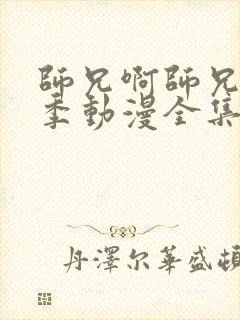 師兄啊師兄
季動漫全集
丹澤尔華盛頓